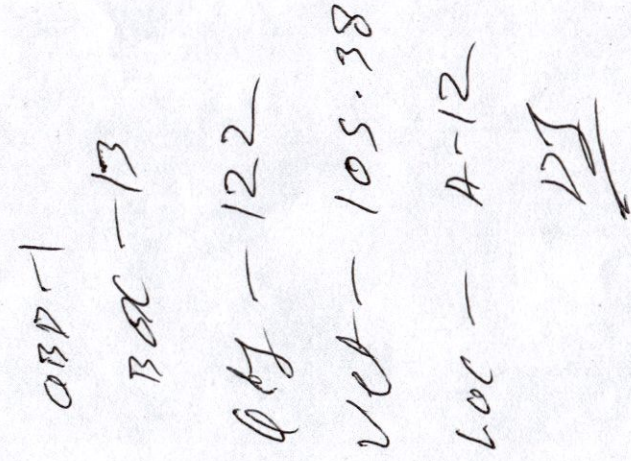 OBD-1
BOX - 13
Qty - 122
Vct - 105.38
LOC - A-12